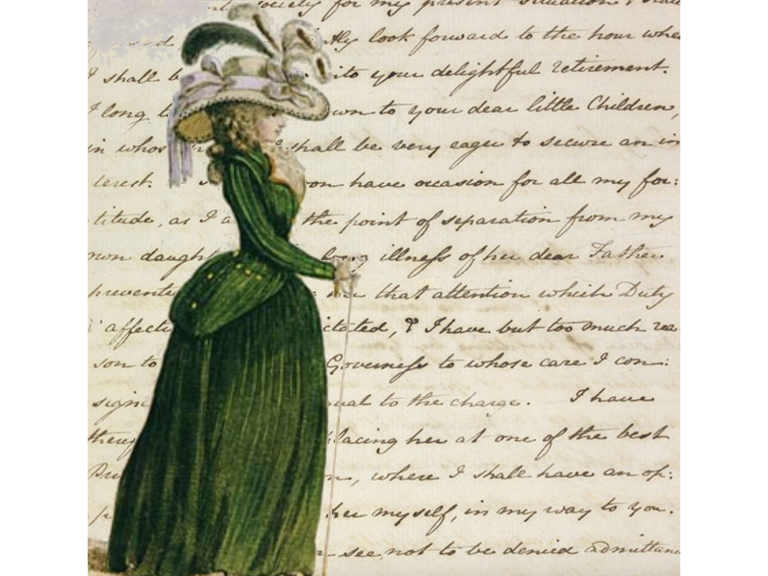 society for my present situation & state
and look forward to the hour when
I shall b into your delightful retirement.
I long t own to your dear little Children,
in whos shall be very eager to secure an in
terest: on have occasion for all my for:
titude, as I a the point of separation from my
own daugh long illness of her dear Father
prevente her that attention which Duty
& affecti ictated, & I have but too much rea
son to Governess to whose care I con:
sign qual to the charge. I have
theref lacing her at one of the best
where I shall have an op:
her myself, in my way to you.
see not to be denied admittanc